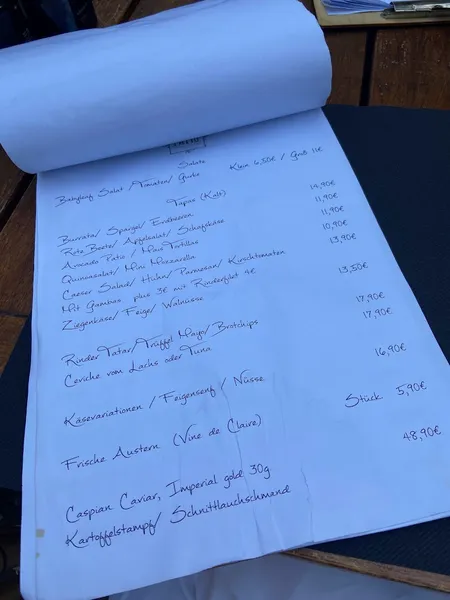 Salate
Babyleaf Salat /Tomaten/ Gurke Klein 6,50€ / Groß 11€
Tapas (Kalt)
Burrata/ Spargel/ Erdbeeren 14,90€
Rote Beete/ Apfelsalat/ Schafskäse 11,90€
Avocado Patio / Mais Tortillas 11,90€
Quinoasalat/ Mini Mozzarella 10,90€
Caeser Salad/ Huhn/ Parmesan/ Kirschtomaten 13,90€
Mit Gambas plus 3€ mit Rinderfilet 4€
Ziegenkäse/ Feige/ Walnüsse 13,50€
Rinder Tatar/Trüffel Mayo/ Brotchips 17,90€
Ceviche vom Lachs oder Tuna 17,90€
Käsevariationen / Feigensenf / Nüsse 16,90€
Frische Austern (Vine de Claire) Stück 5,90€
Caspian Caviar, Imperial gold 30g 48,90€
Kartoffelstampf/ Schnittlauchschmand